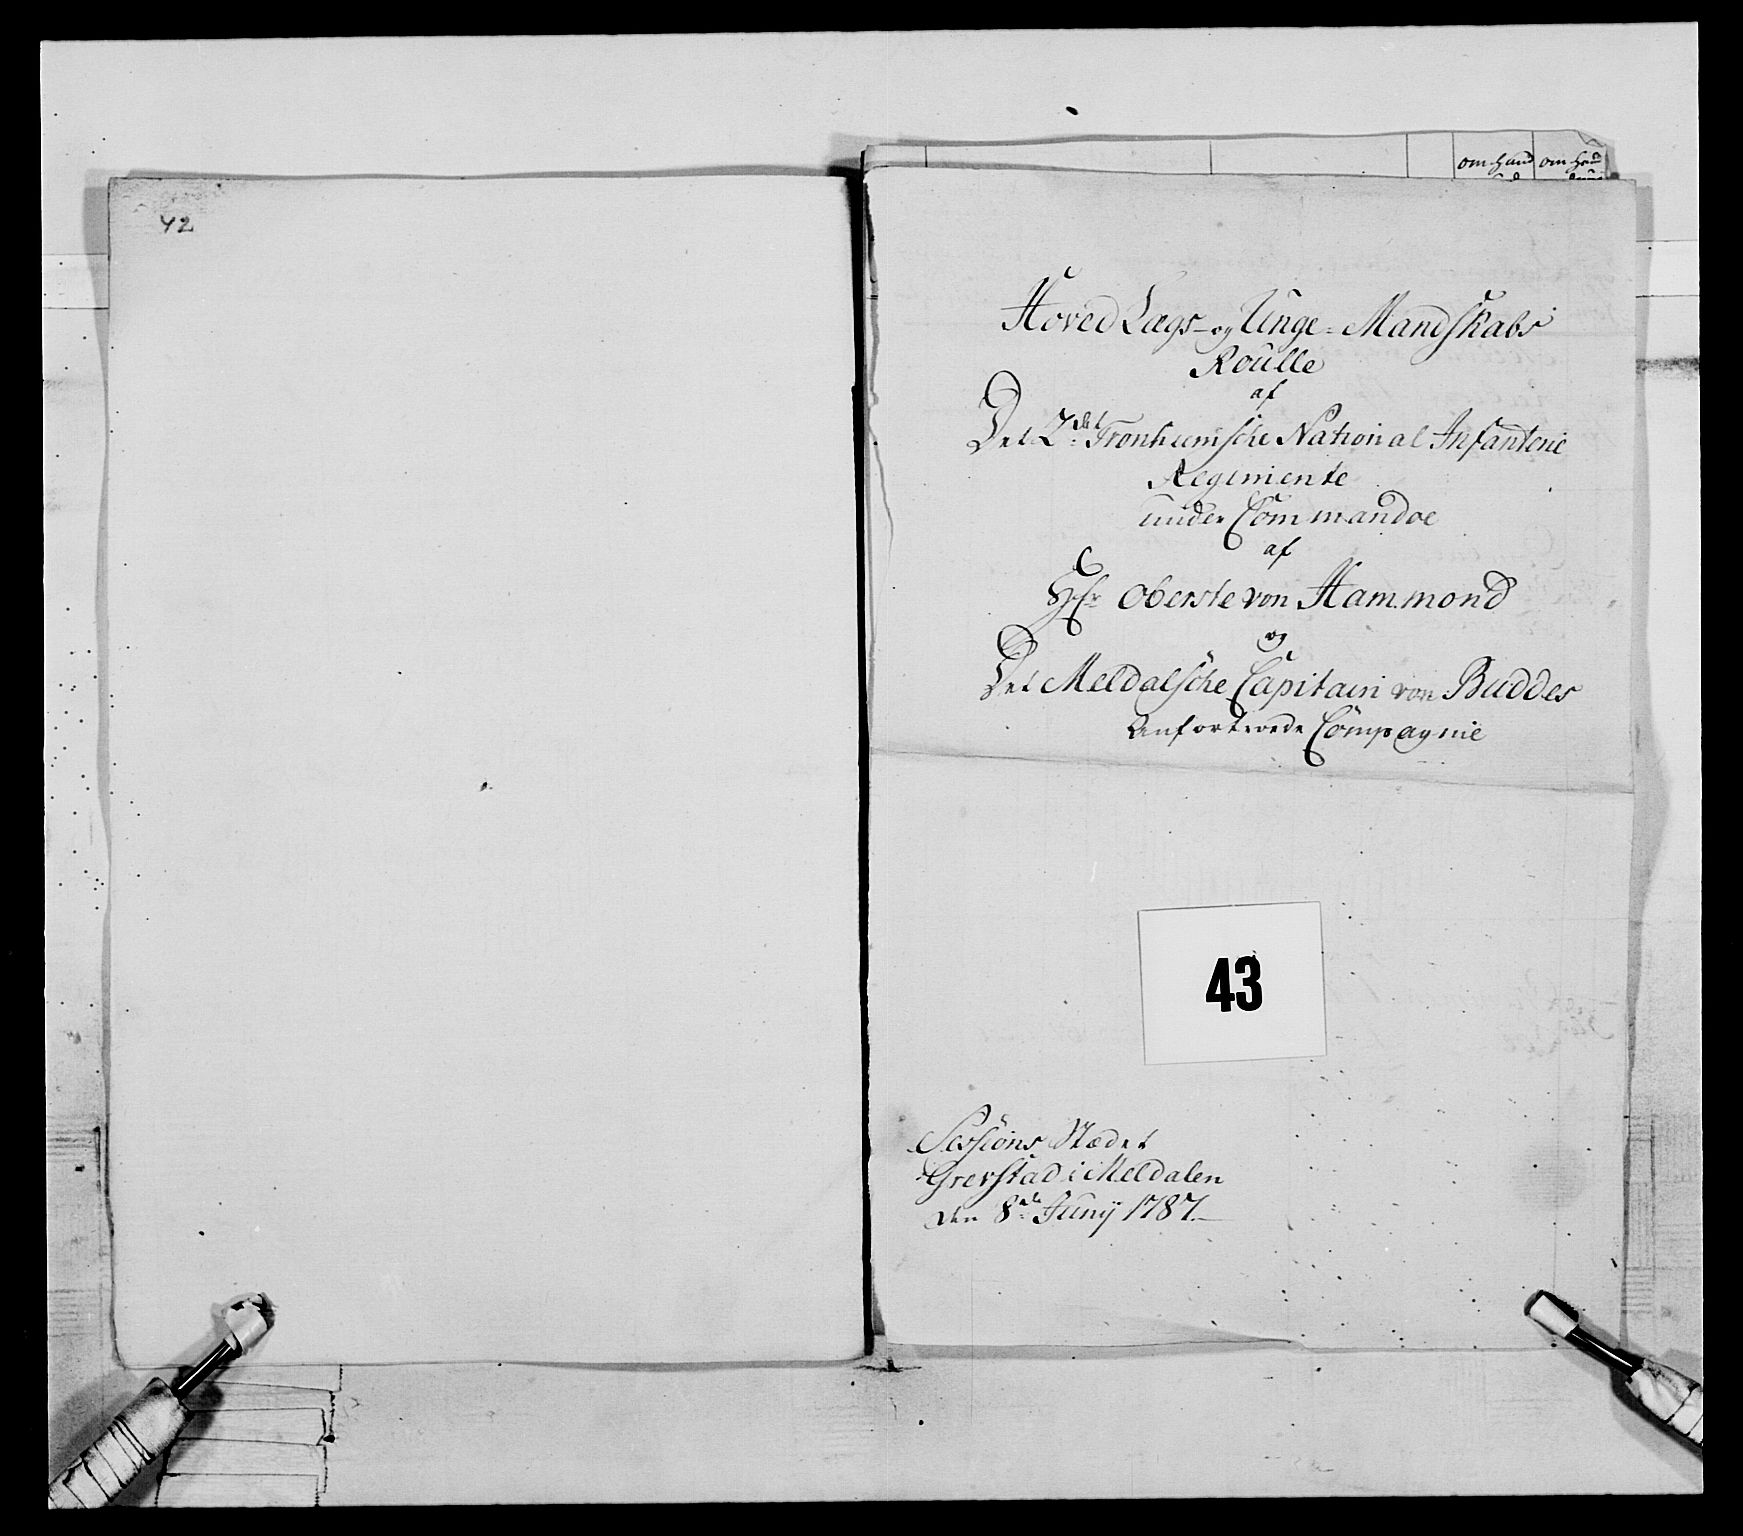 42
om haud om haud
Hoved Lægs- og Unge-Mandskabs
Roulle
af
Det 2det Tronhiemsche National Infanterie
Regimente
under Commandoe
af
Hr Oberste von Hammond
og
Det Meldalsche Capitain von Buddes
Anfortroede Compagnie
43
Sessions Stædet
Grefstad i Meldalen
den 8de Junij 1787